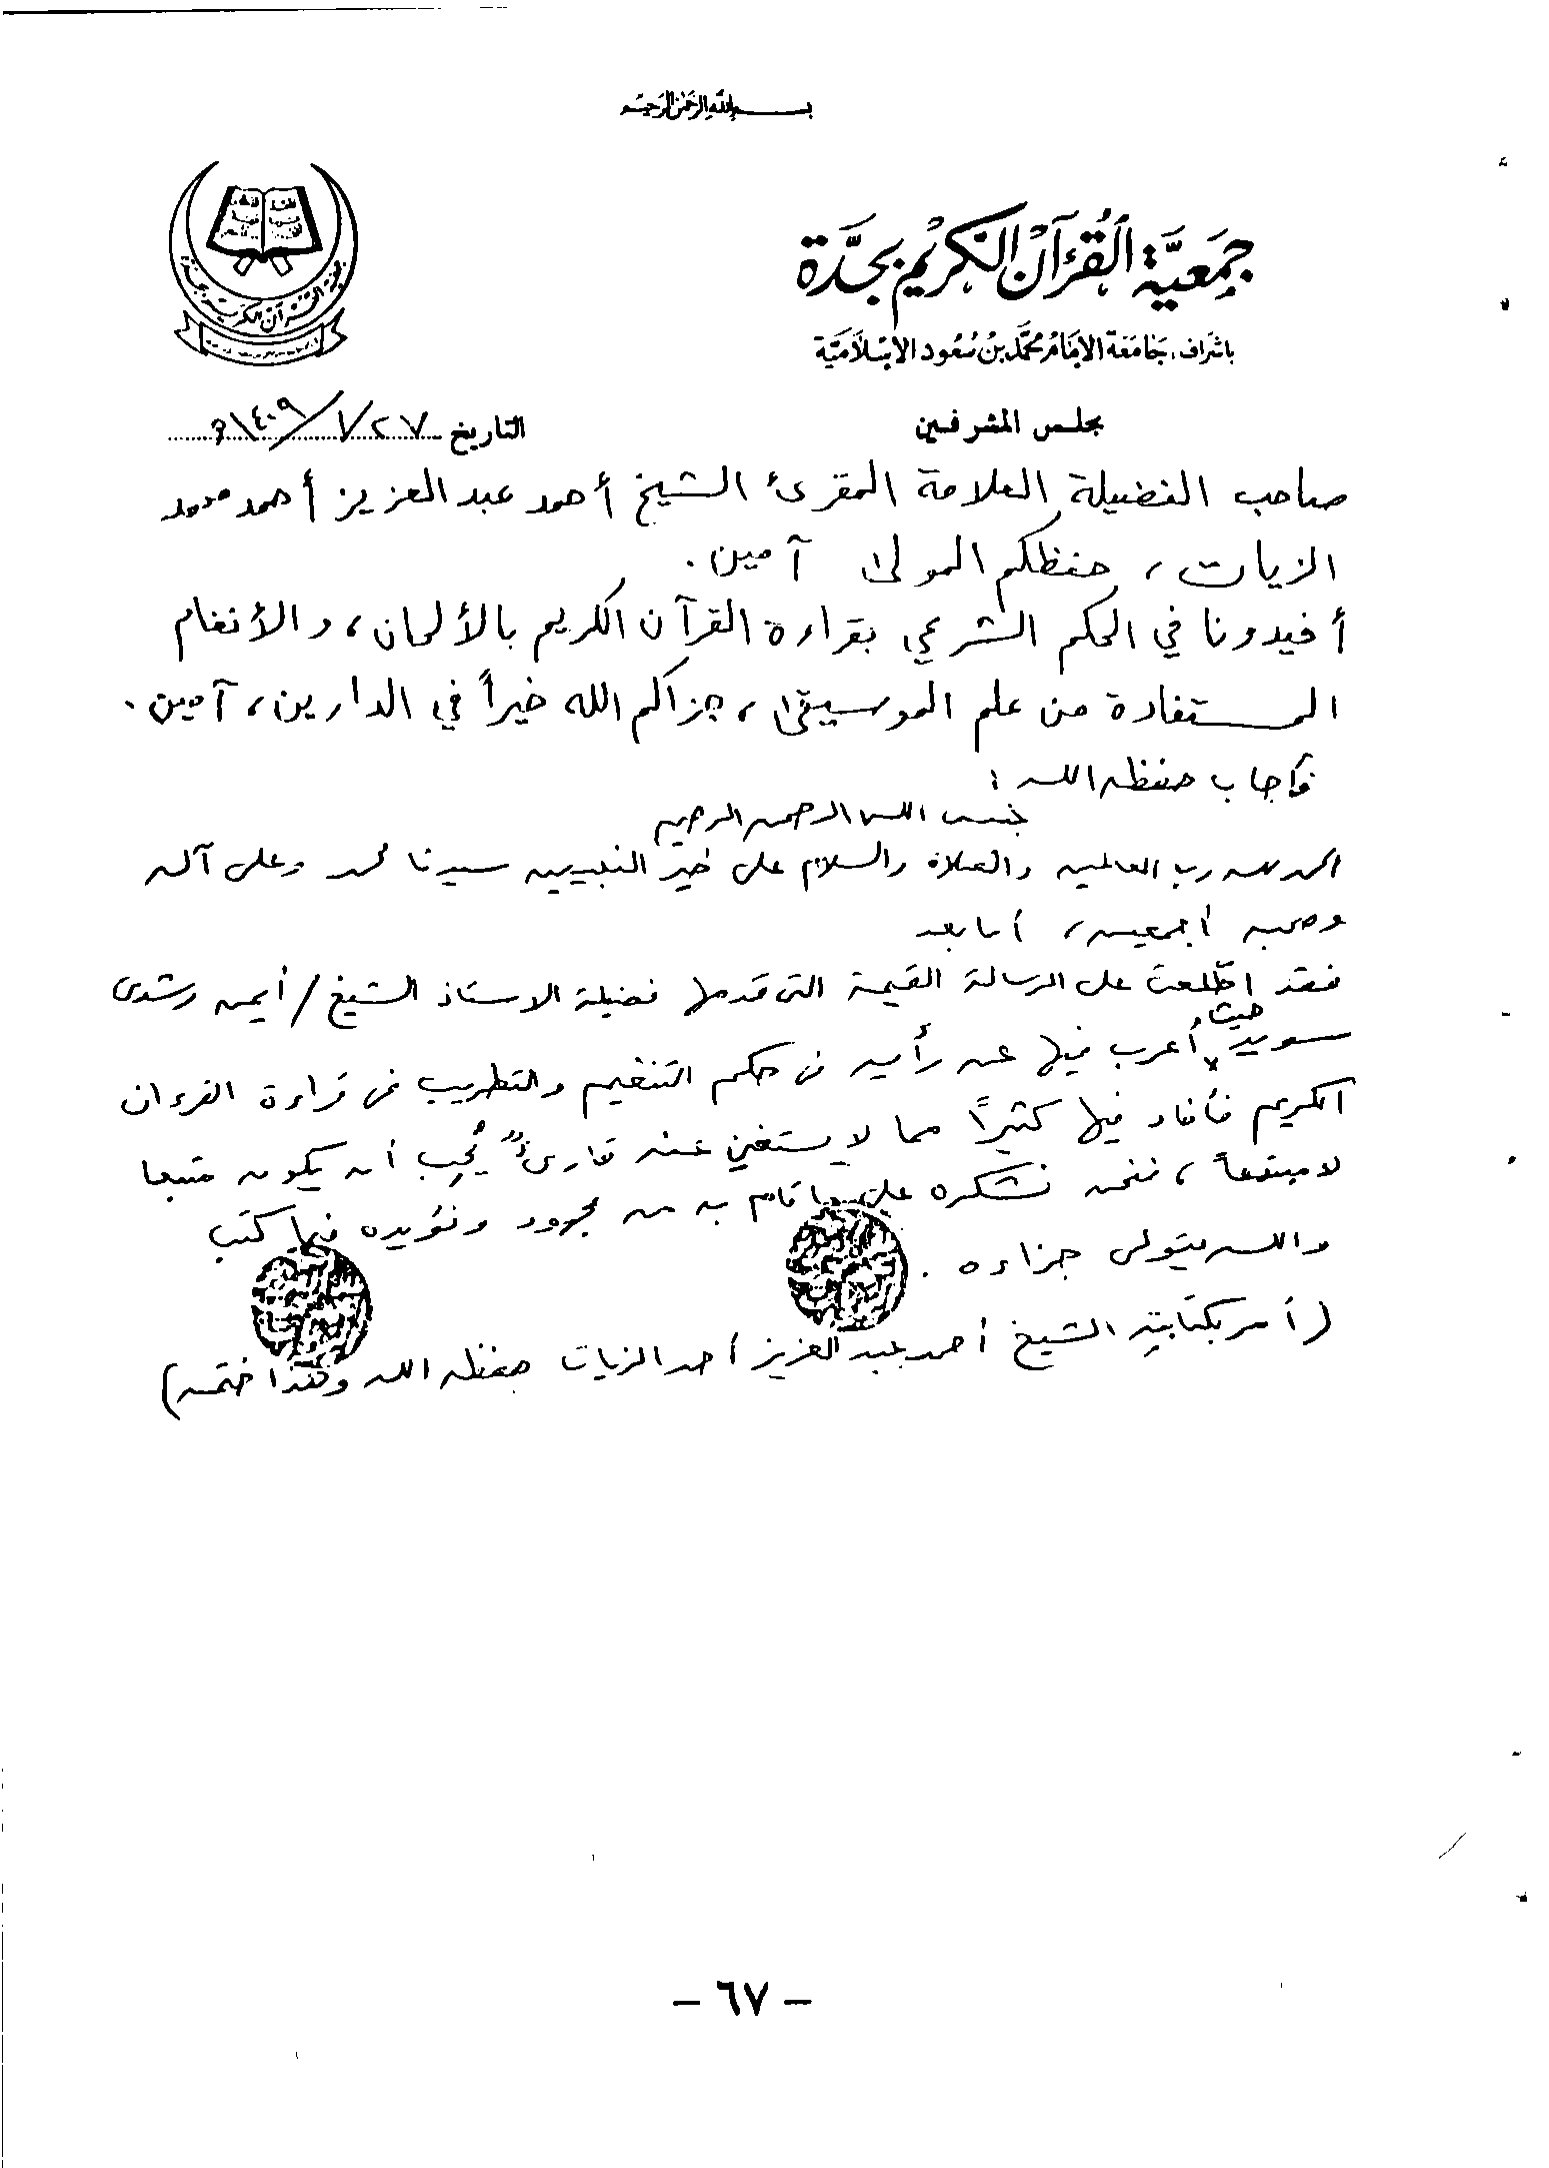 بسم الله الرحمن الرحيم
جمعية القرآن الكريم بجدة
جمعية القرآن الكريم بجدة
باشراف: جامعة الإمام محمد بن سعود الإسلامية
مجلس المشرفين
التاريخ ٢٧/١/١٤٠٩هـ
صاحب الفضيلة العلامة المقرئ الشيخ أحمد عبد العزيز أحمد محمد
الزيات، حفظكم المولى آمين.
أفيدونا في الحكم الشرعي بقراءة القرآن الكريم بالألحان، والأنغام
المستفادة من علم الموسيقى، جزاكم الله خيراً في الدارين، آمين.
فأجاب حفظه الله:
بسم الله الرحمن الرحيم
الحمد لله رب العالمين والصلاة والسلام على خير النبيين سيدنا محمد وعلى آله
وصحبه أجمعين، أما بعد
فقد اطّلعت على الرسالة القيمة التى قدمها فضيلة الاستاذ الشيخ / أيمن رشدى
سويد حيث أعرب فيها عن رأيه فى حكم التنغيم والتطريب فى قراءة القرءان
الكريم فأفاد فيها كثيرًا مما لا يستغنى عنه قارئٌ يُحِب أن يكون متبعا
لا مبتدعاً، فنحن نشكره على ما قام به من مجهود ونؤيده فيما كتب
والله يتولى جزاءه .
(أمر بكتابته الشيخ أحمد عبد العزيز أحمد الزيات حفظه الله وهذا ختمه)
- ٦٧ -